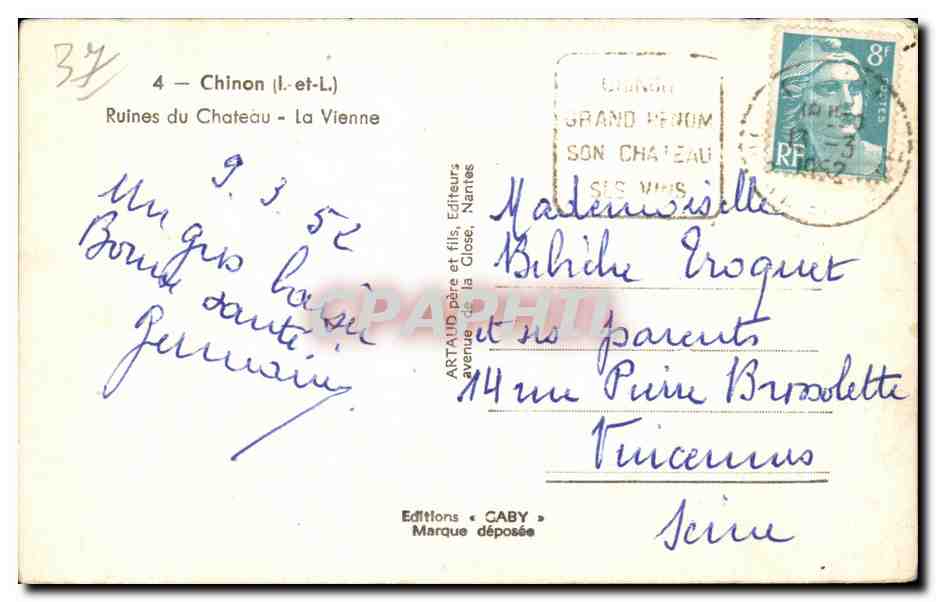 37
4 — Chinon (I.-et-L.)
Ruines du Chateau - La Vienne
9.3.52
Un gros baiser
Bonne santé
Germain
ARTAUD père et fils, Editeurs
avenue de la Close, Nantes
Editions « GABY »
Marque déposée
CHINON
GRAND RENOM
SON CHATEAU
SES VINS
8F
POSTES
RF
-3
1952
Mademoiselle
Bibiche Troquet
et ses parents
14 rue Pierre Brossolette
Vincennes
Seine
CPAPHIL